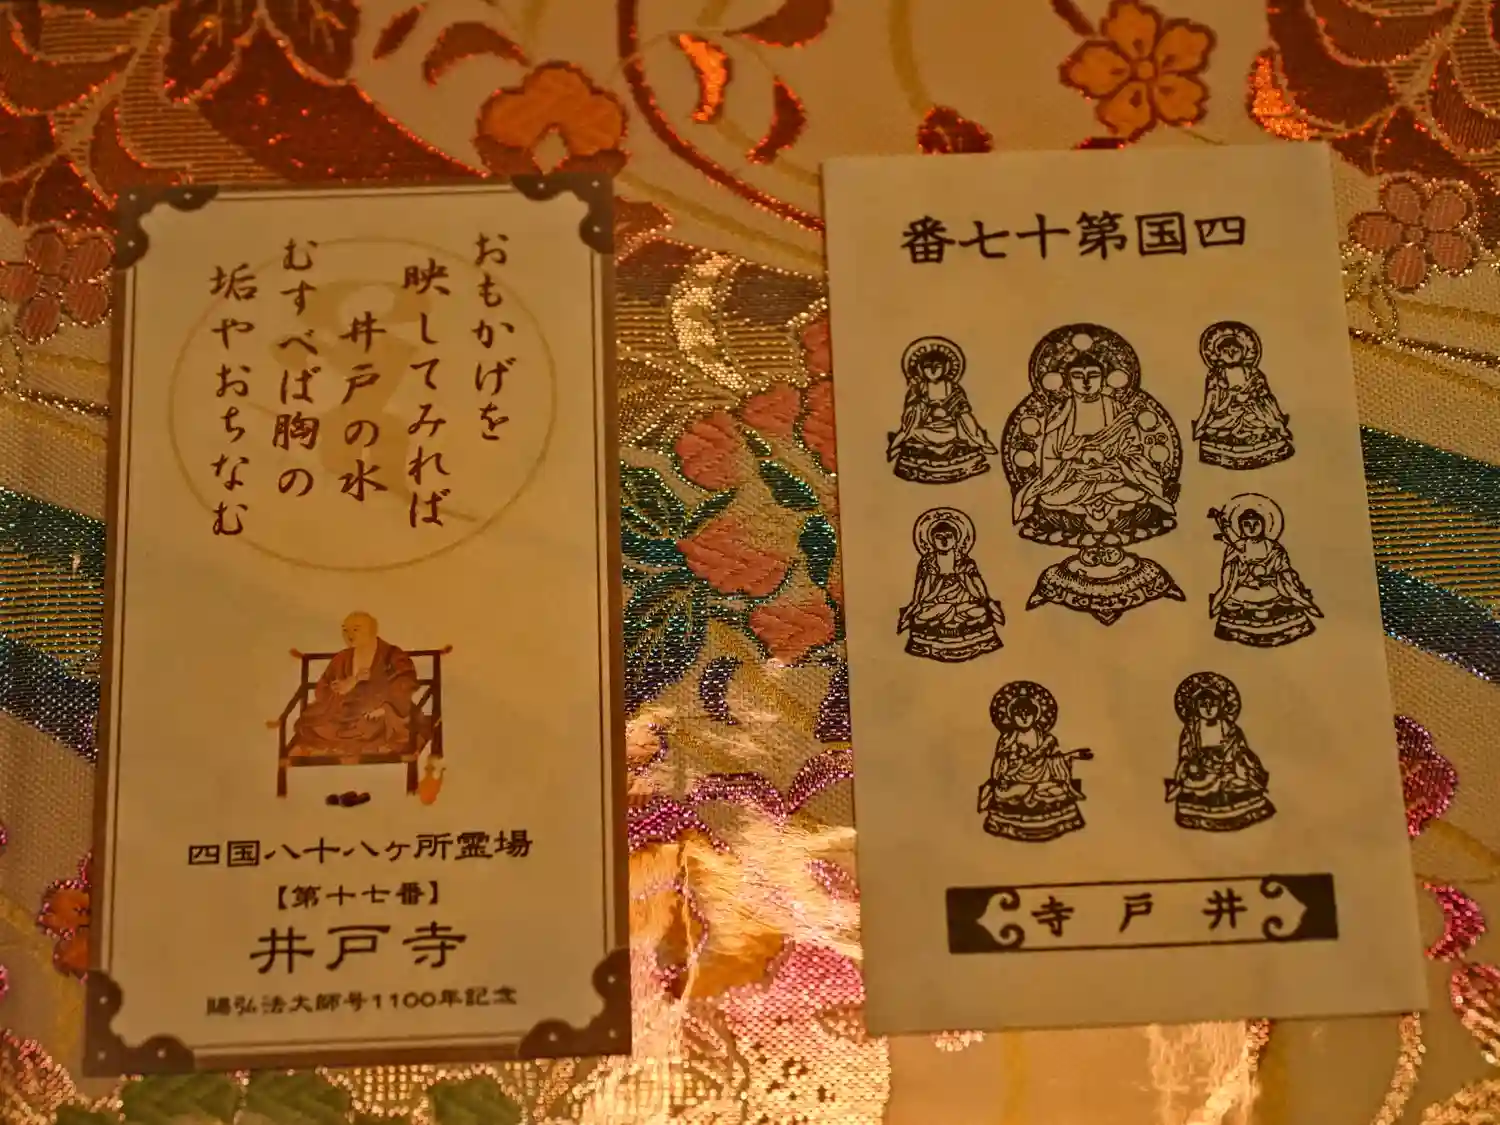 おもかげを
映してみれば
井戸の水
むすべば胸の
垢やおちなむ
四国八十八ヶ所霊場
【第十七番】
井戸寺
賜弘法大師号1100年記念
四国第十七番
井戸寺